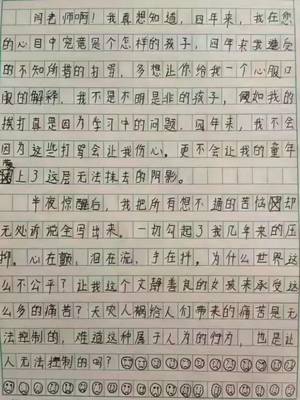 闫老师啊！我真想知道，四年来，我在您
的心目中究竟是个怎样的孩子，四年来我遭受
的不知所措的打骂，多想让你给我一个心服口
服的解释，我不是不明是非的孩子，假如我的
挨打真是因为学习中的问题，四年来，我不会
因为这些打骂会让我伤心。更不会让我的童年
蒙上了这层无法抹去的阴影。
半夜惊醒白，我把所有想不通的苦恼因却
无处诉说全写出来。一切勾起了我几年来的压
抑。心在颤，泪在流，手在抖。为什么世界这
么不公平？让我这个文静善良的女孩来承受这
么多的痛苦？天灾人祸给人们带来的痛苦是无
法控制的，难道这种属于人为的行为，也是让
人无法控制的吗？